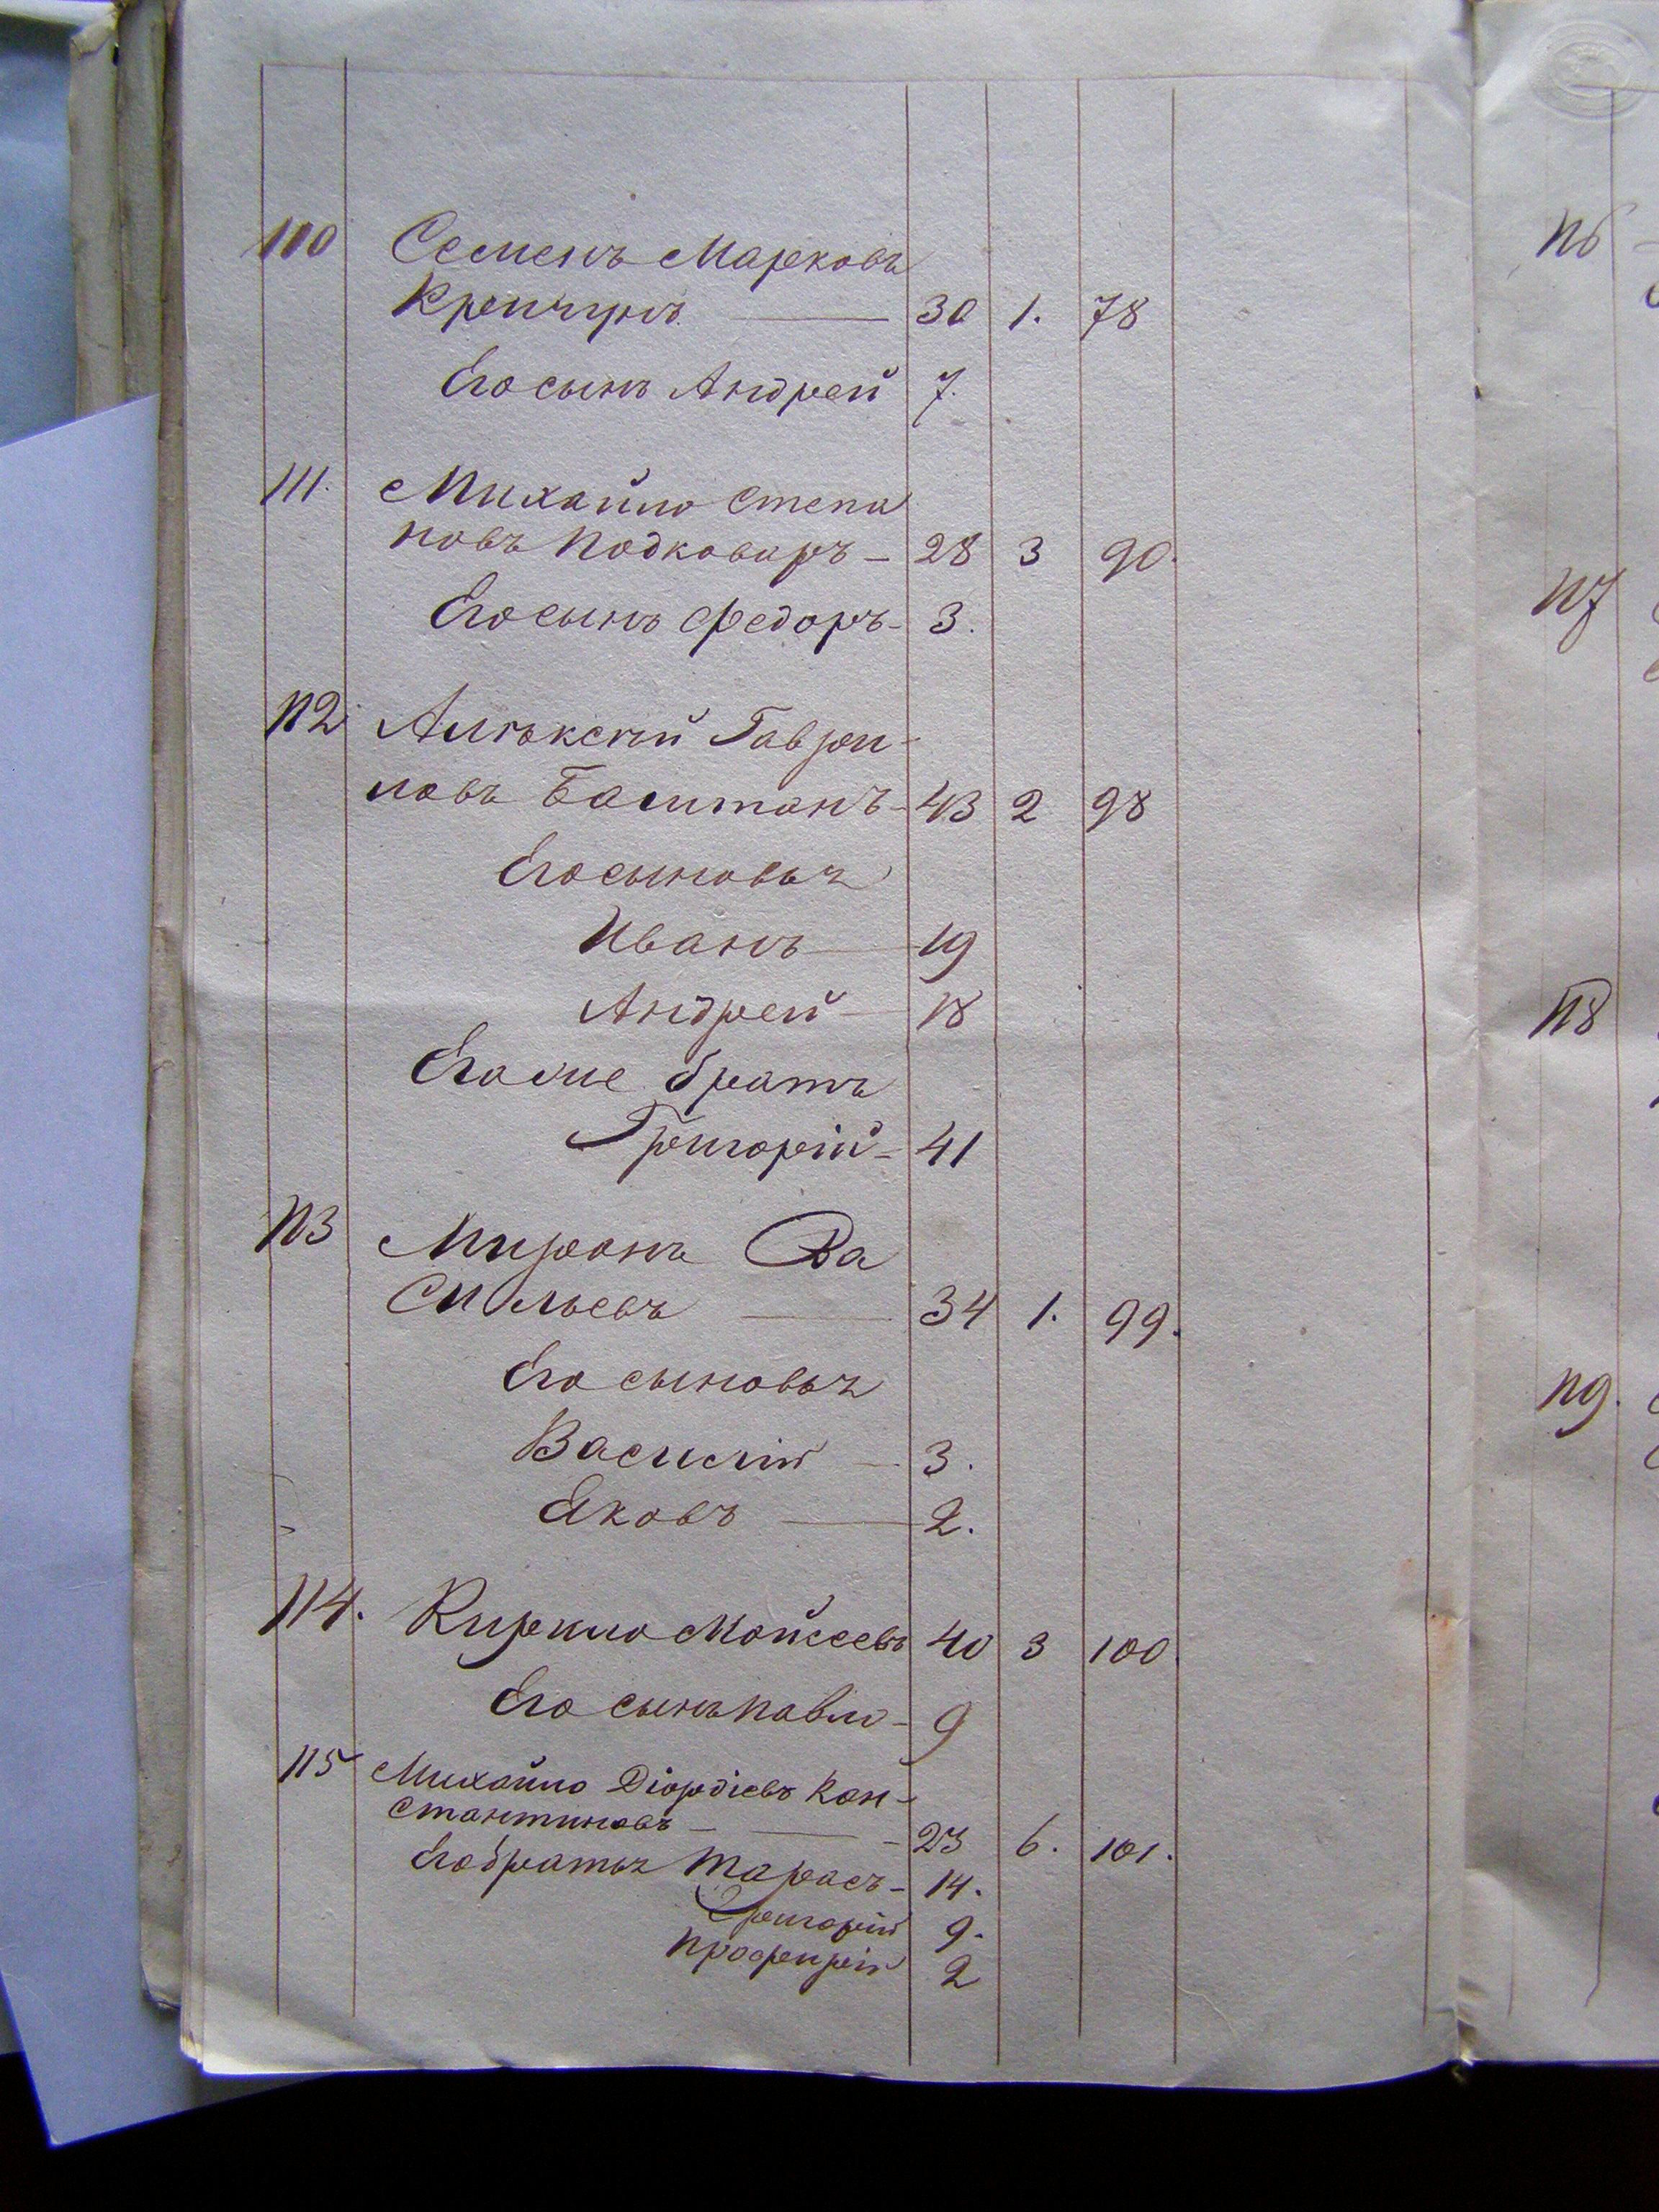 110 Семенъ Марковъ
Кремчукъ — 30 1. 78
Его сынъ Андрей 7.
111. Михайло Степа
новъ Подковыръ - 28 3 90.
Его сынъ Федоръ - 3.
112 Алѣксѣй Гаври-
ловъ Баештанъ - 43 2 98
Его сыновья
Иванъ — 19
Андрей — 18
Его же братъ
Григорій - 41
113 Миронъ Ва
Сильевъ — 34 1. 99.
Его сыновья
Василій — 3.
Яковъ — 2.
114. Кирило Мойсеевъ 40 3 100.
Его сынъ Павло - 9
115 Михайло Діордіевъ Кон-
стантиновъ - — - 23 6. 101.
Его братья Тарасъ - 14.
Григорій 9.
Профирій 2
116
117
118
119.